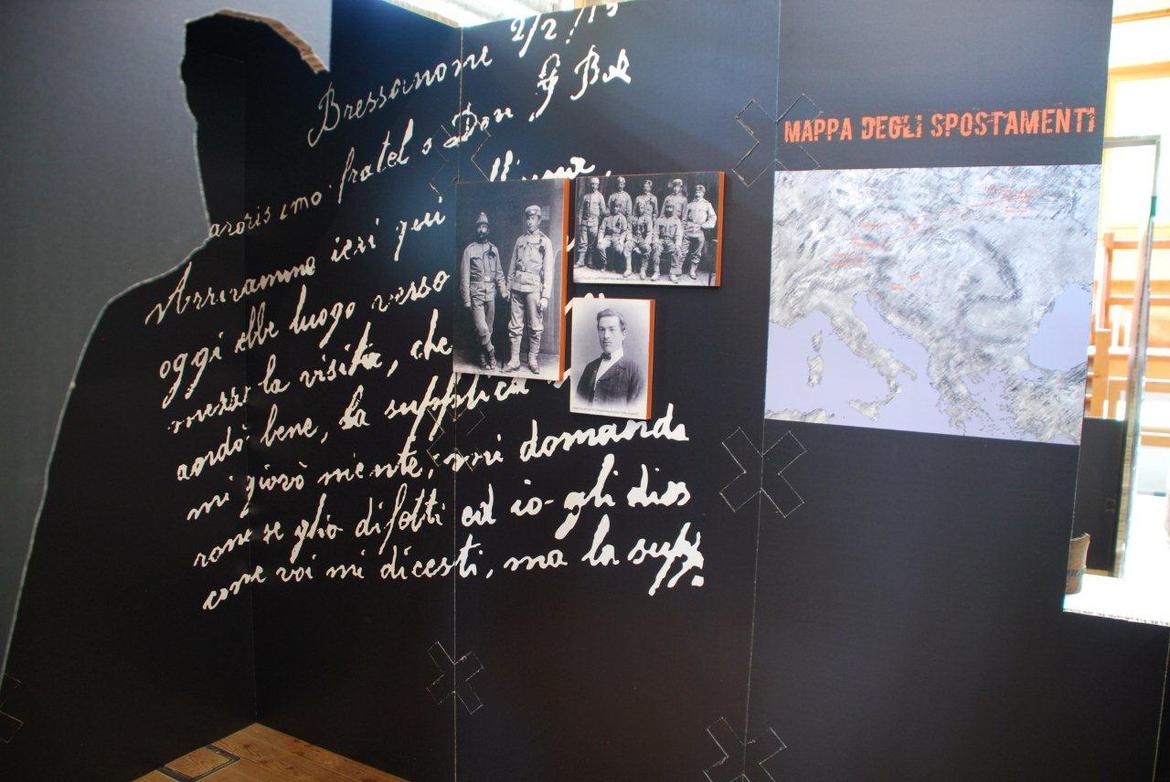 Bressanone 2/2/15
fratello Don G Bel
Arrivammo ieri qui
oggi ebbe luogo verso
mezzo la visita, che
andò bene, la supplica
mi giovò niente, mi domanda
rono se glio difetti ed io gli diss
come voi mi dicesti, ma la supp.
MAPPA DEGLI SPOSTAMENTI